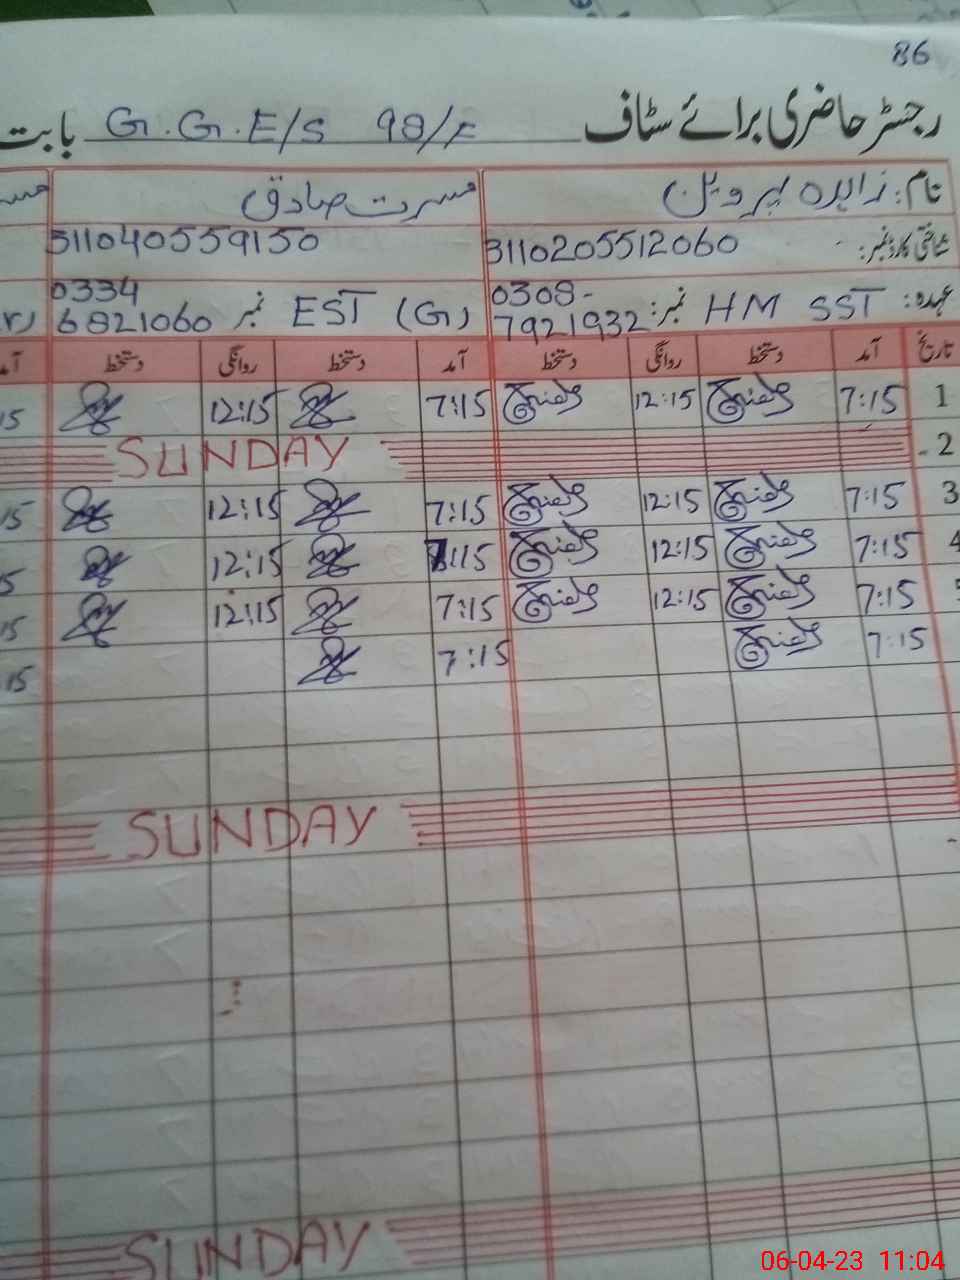 86
رجسٹر حاضری برائے سٹاف G.G.E/S 98/F بابت
نام: زاہدہ پروین مسرت صادق
شناختی کارڈ نمبر: 3110205512060 311040559150
عہدہ: HM SST نمبر: 0308-7921932 EST (G) نمبر 0334 6821060
تاریخ آمد دستخط روانگی دستخط آمد دستخط روانگی دستخط
1 7:15 12:15 7:15 12:15 15
2 SUNDAY
3 7:15 12:15 7:15 12:15 15
4 7:15 12:15 7:15 12:15 5
5 7:15 12:15 7:15 12:15 15
7:15 7:15 15
SUNDAY
SUNDAY
06-04-23 11:04